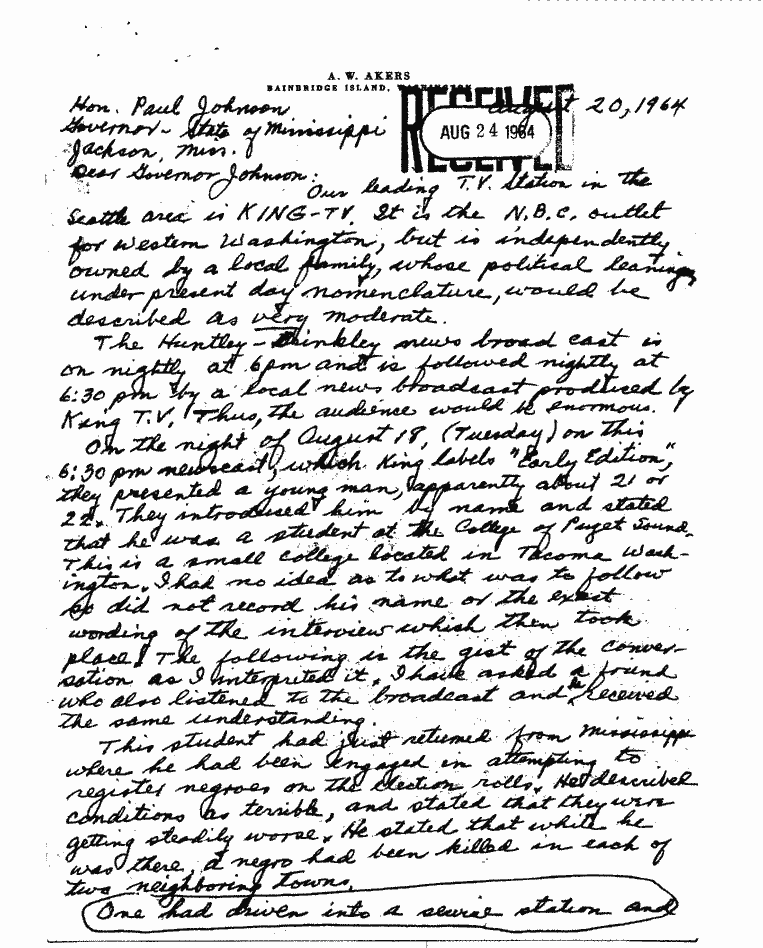 A. W. AKERS
BAINBRIDGE ISLAND, WASHINGTON
RECEIVED
AUG 24 1964
RECEIVED
August 20, 1964
Hon. Paul Johnson
Governor - State of Mississippi
Jackson, Miss.
Dear Governor Johnson:
Our leading T.V. Station in the
Seattle area is KING-TV. It is the N.B.C. outlet
for western Washington, but is independently
owned by a local family, whose political leanings
under present day nomenclature, would be
described as very moderate.
The Huntley-Brinkley news broad cast is
on nightly at 6pm and is followed nightly at
6:30 pm by a local news broadcast produced by
King T.V. Thus, the audience would be enormous.
On the night of August 18, (Tuesday) on this
6:30 pm newscast, which King labels "Early Edition,"
they presented a young man, apparently about 21 or
22. They introduced him by name and stated
that he was a student at the College of Puget Sound.
This is a small college located in Tacoma Wash-
ington. I had no idea as to what was to follow
so did not record his name or the exact
wording of the interview which then took
place. The following is the gist of the conver-
sation as I interpreted it. I have asked a friend
who also listened to the broadcast and he received
the same understanding.
This student had just returned from Mississippi
where he had been engaged in attempting to
register negroes on the election rolls. He described
conditions as terrible, and stated that they were
getting steadily worse. He stated that while he
was there, a negro had been killed in each of
two neighboring towns.
One had driven into a service station and